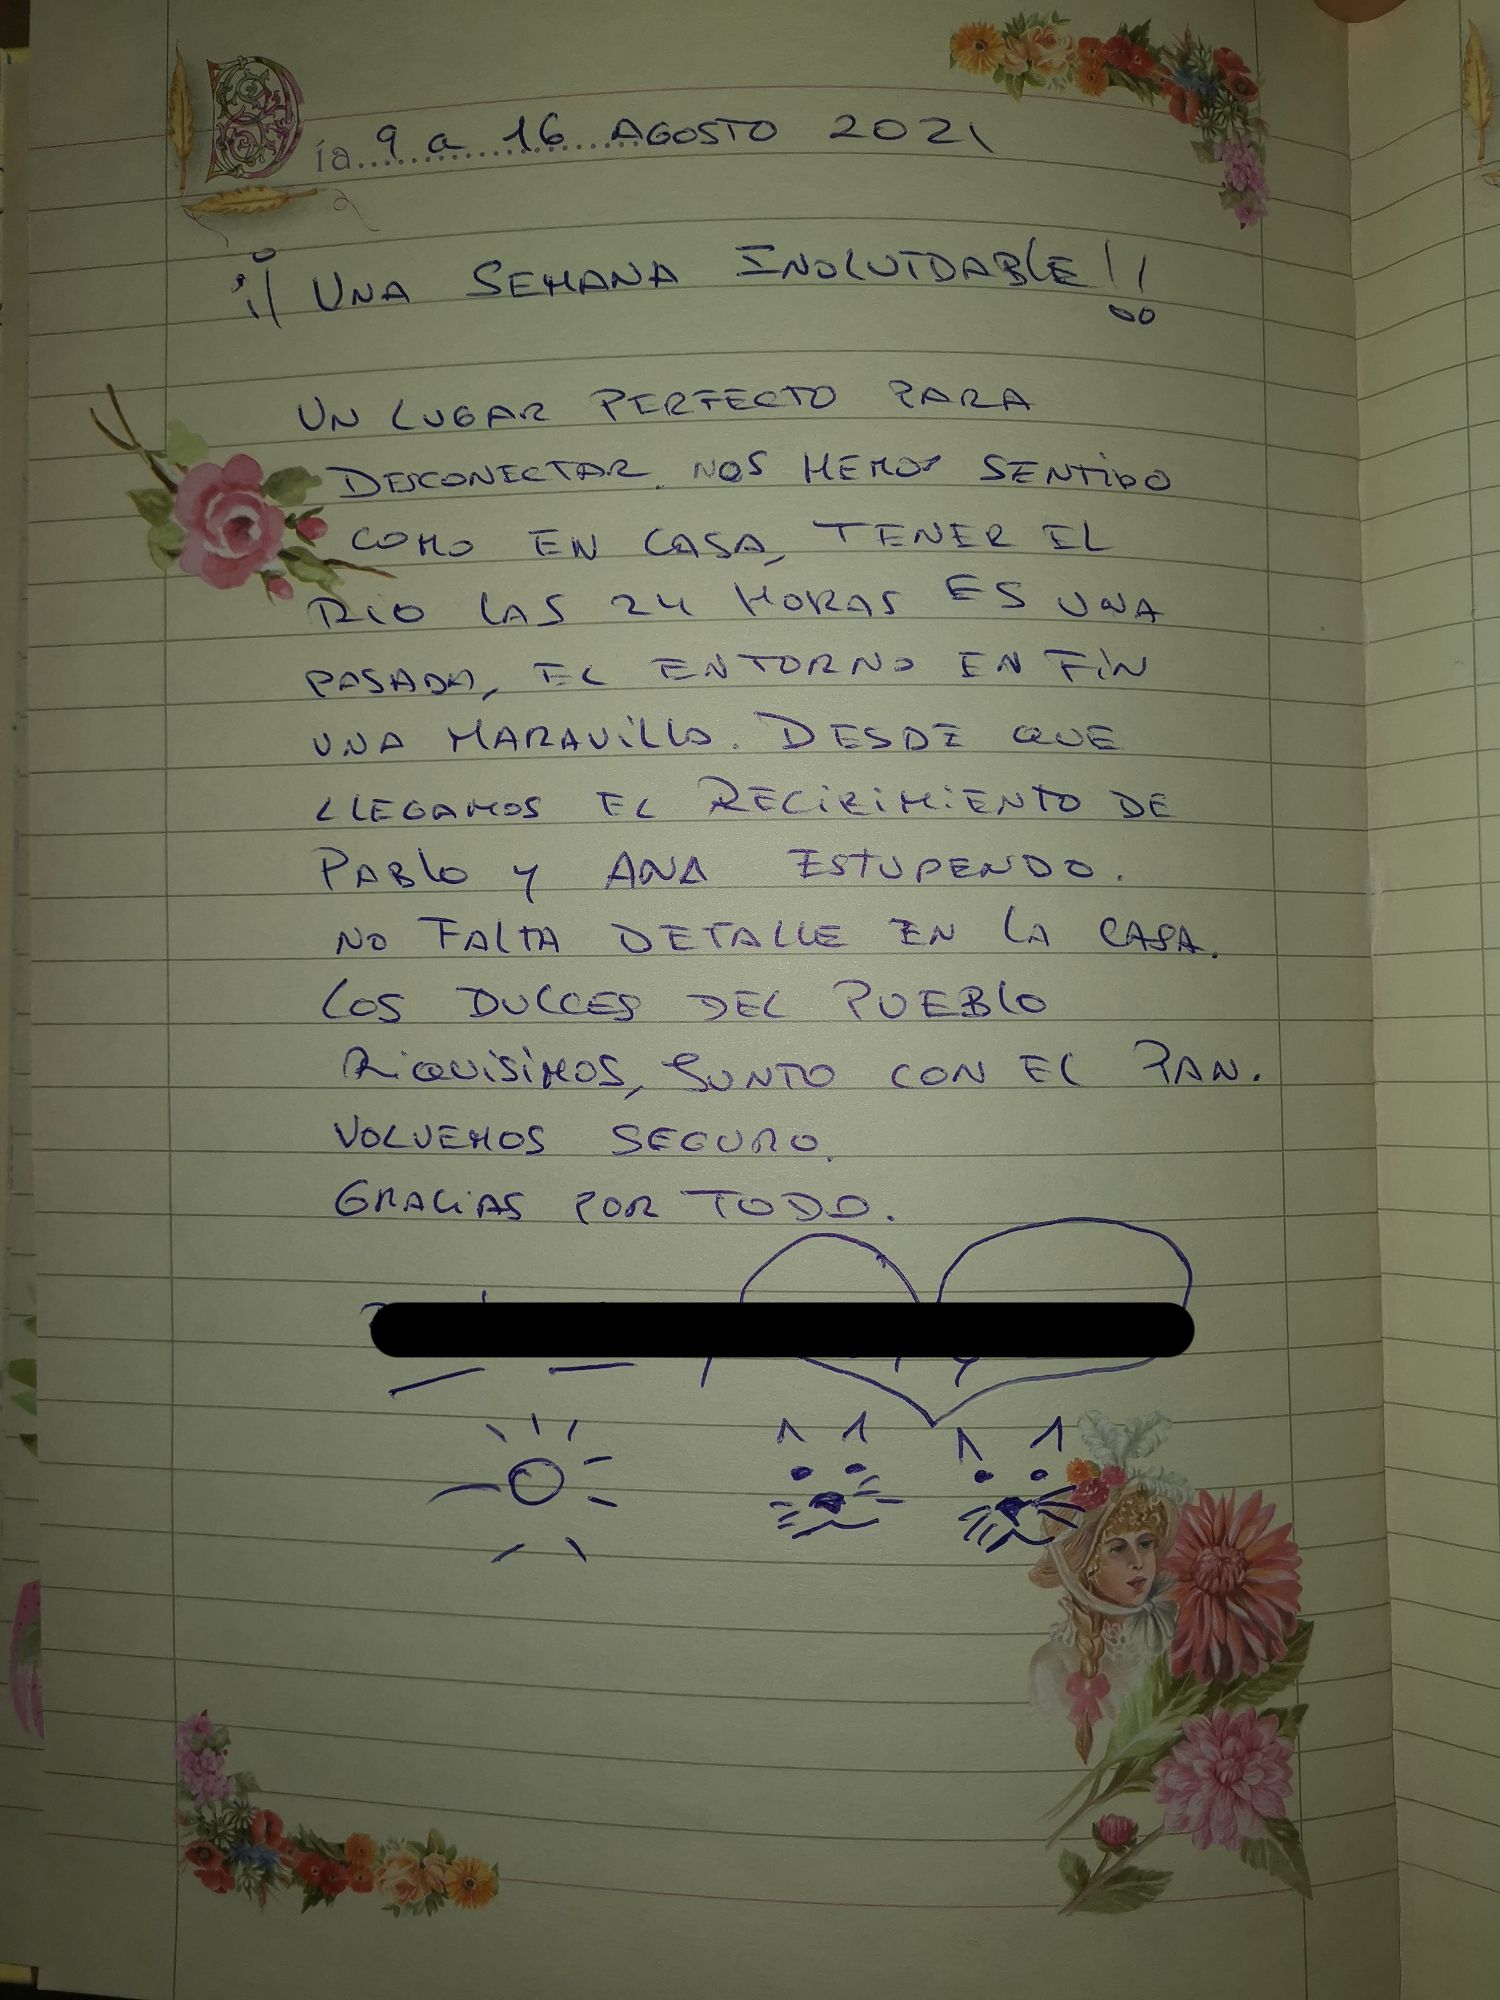 Día 9 a 16 AGOSTO 2021
¡¡ UNA SEMANA INOLVIDABLE!!
UN LUGAR PERFECTO PARA
DESCONECTAR. NOS HEMOS SENTIDO
COMO EN CASA, TENER EL
RIO LAS 24 HORAS ES UNA
PASADA, EL ENTORNO EN FIN
UNA MARAVILLA. DESDE QUE
LLEGAMOS EL RECIBIMIENTO DE
PABLO Y ANA ESTUPENDO.
NO FALTA DETALLE EN LA CASA.
LOS DULCES DEL PUEBLO
RIQUISIMOS, JUNTO CON EL PAN.
VOLVEMOS SEGURO.
GRACIAS POR TODO.